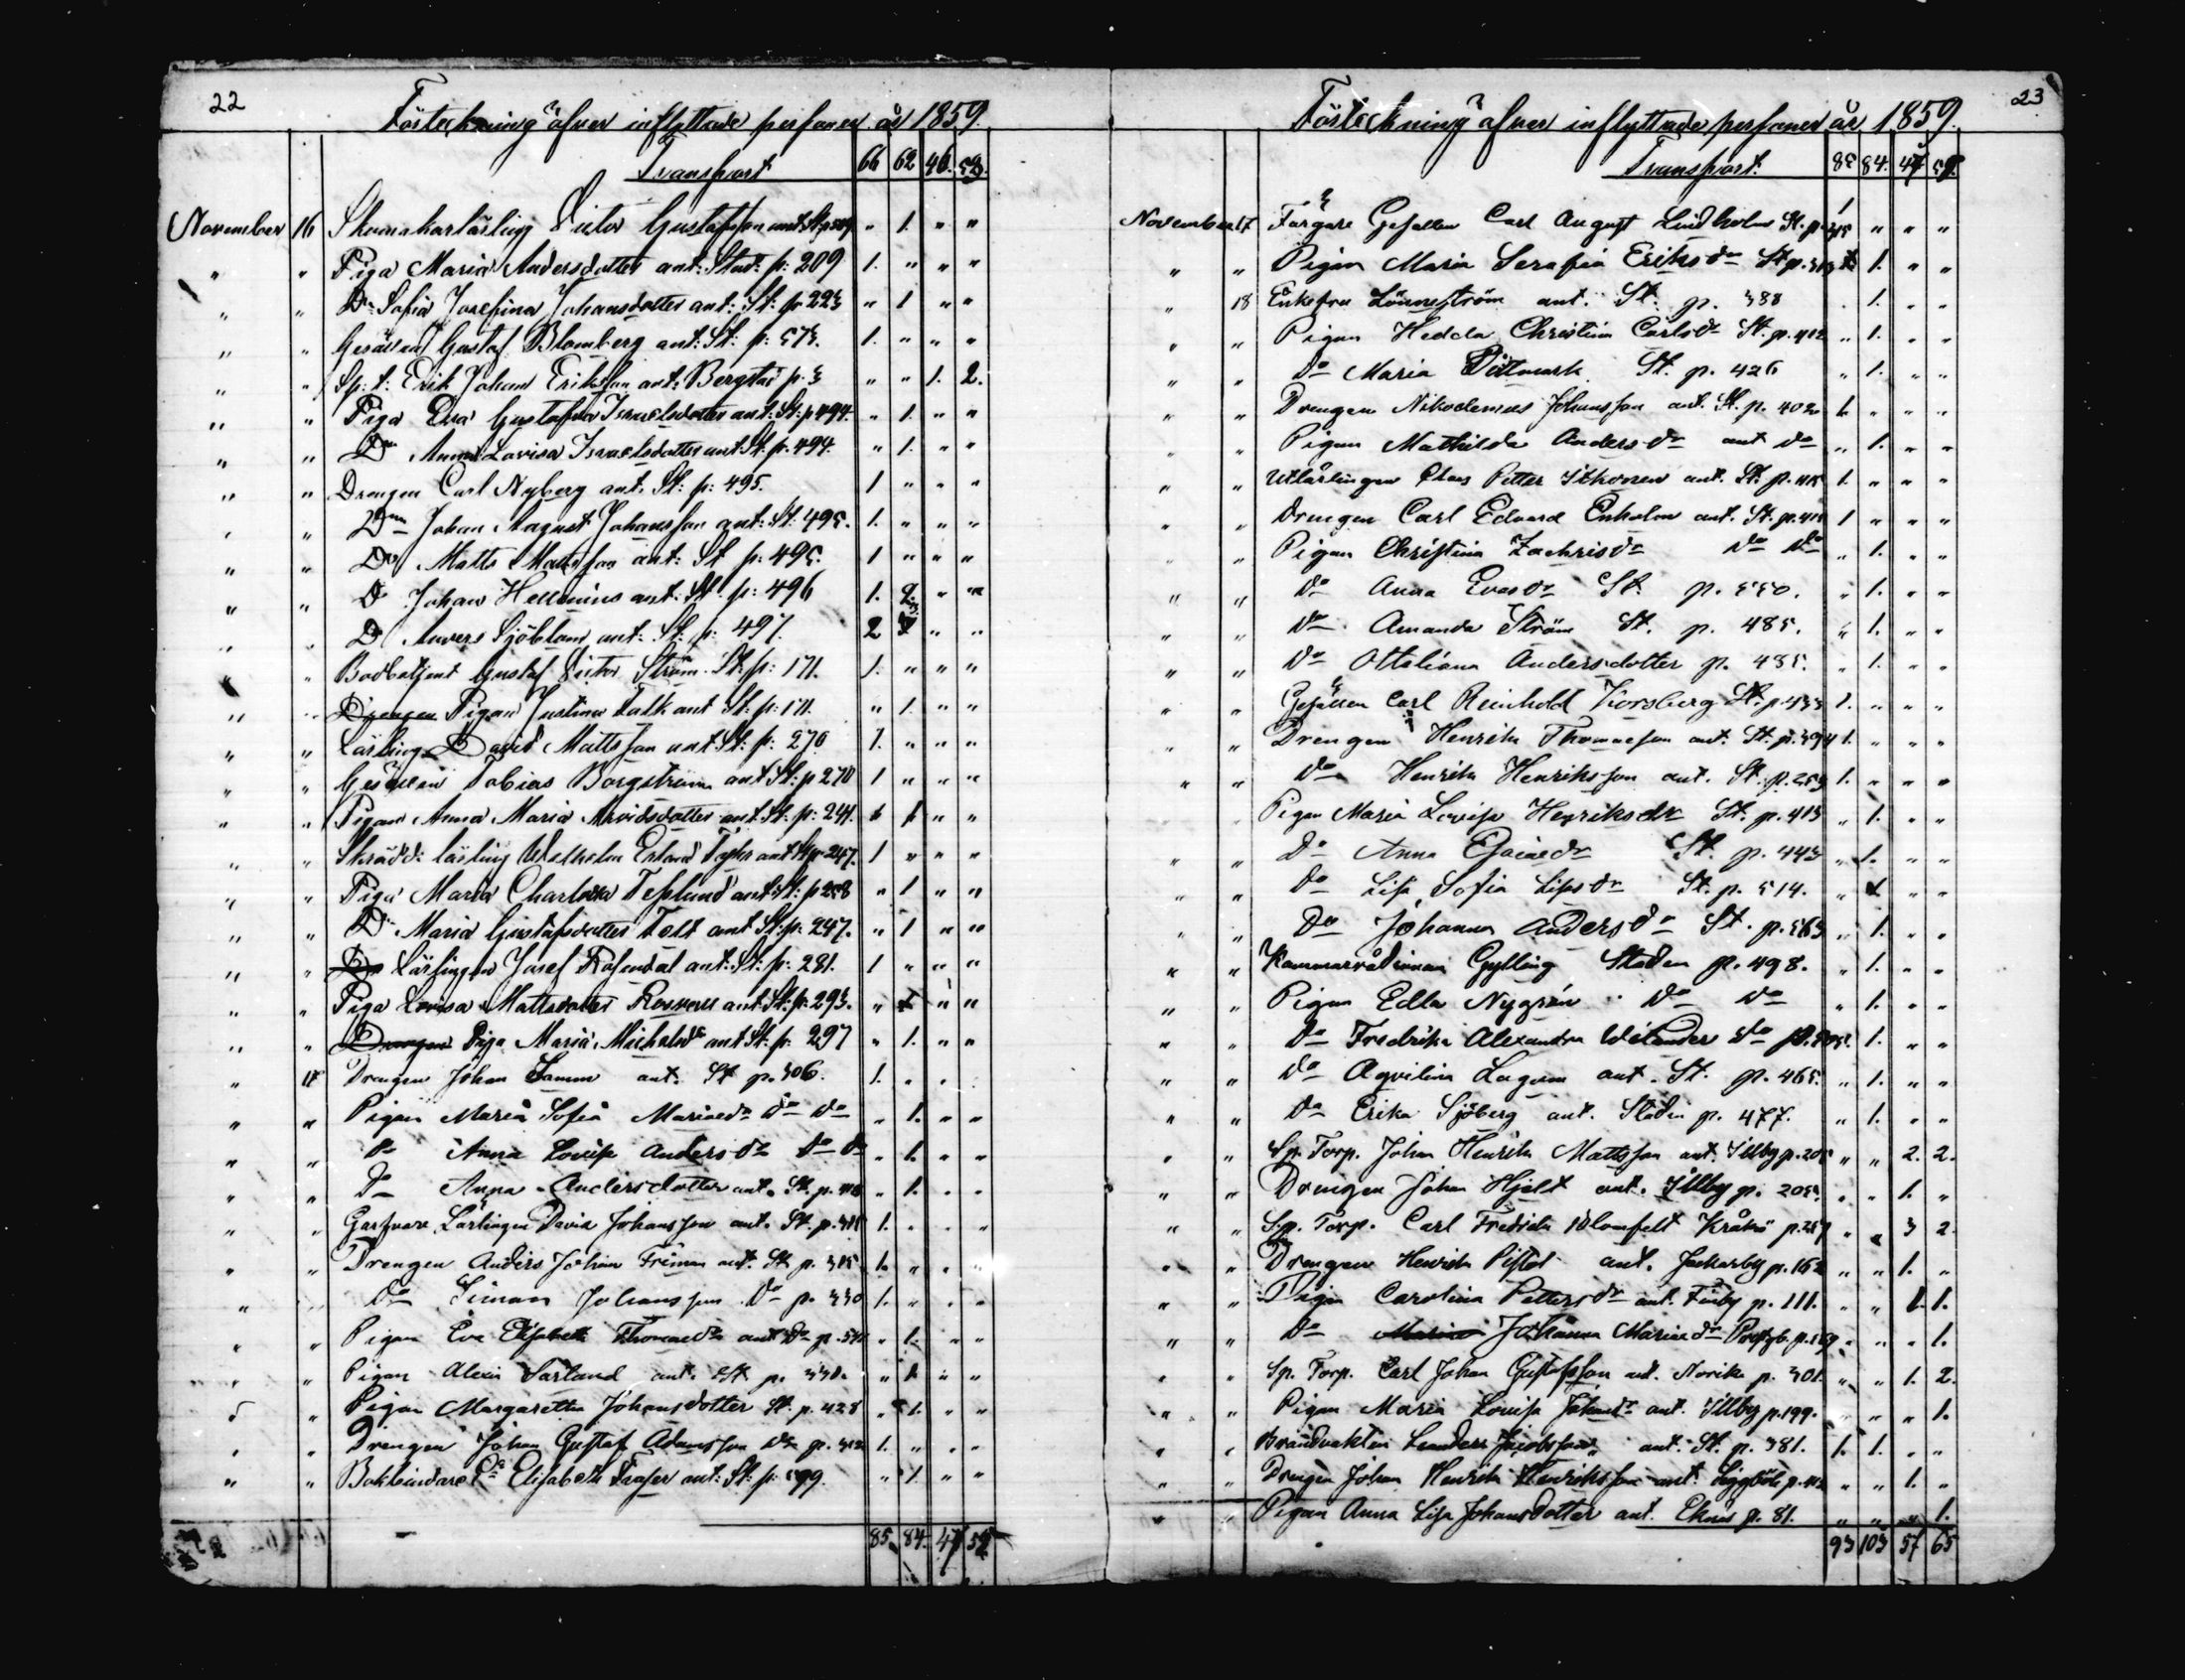 22
Förteckning öfver inflyttade personer år 1859.
Transport 66 62 46. 53.
November 16 Skomakarlärling Victor Gustafsson ant St p " 1. " "
" " Piga Maria Andersdotter ant: Stad: p: 209 1. " " "
" " Do Sofia Josefina Johansdotter ant: St: p 223 " 1 " "
" " Gesällen Gustaf Blomberg ant: St: p: 573. 1. " " "
" " Sp: t: Erik Johan Eriksson ant: Bergsta p. 3 " " 1. 2.
" " Piga Eva Gustafva Israelsdotter ant: St: p 494. " 1. " "
" " Do Anna Lovisa Israelsdotter ant St. p. 494. " 1. " "
" " Drengen Carl Nyberg ant. St: p: 495. 1 " " "
" " Do Johan August Johansson ant: St: 495. 1. " " "
" " Do Matts Mattsson ant: St p. 495. 1 " " "
" " Do Johan Hellenius ant: St p: 496 1. 2. " "
" " Do Anders Sjöblom ant: St: p: 497. 2 " "
" " Gustaf Victor Ström St: p: 171. 1. " " "
" " Drengen Pigan Justina Falk ant St: p: 171. " 1. " "
" " Lärling David Mattsson ant St: p: 270 1. " " "
" " Gesällen Tobias Borgström ant St: p 270 1 " " "
" " Pigan Anna Maria Arvidsdotter ant St: p: 241. 1 " "
" " Skrädd: lärling Wilhelm Erland ant St p 247. 1 " " "
" " Piga Maria Charlotta Teslund ant: St: p 258 " 1 " "
" " Do Maria Gustafsdotter Tolt ant St: p: 247. " 1 " "
" " Do Lärlingen Josef Rosendal ant: St: p: 281. 1 " " "
" " Piga Lovisa Mattsdotter ant St: p: 293. " 1 " "
" " Drengen Piga Maria Michelsdr ant St: p: 297 " 1. " "
" 17 Drengen Johan Lamm ant. St p. 306. 1. " " "
" " Pigan Maria Sofia Mariaedr Do Do " 1. " "
" " Do Anna Lovisa Andersdr Do Do " 1. " "
" " Do Anna Andersdotter ant. St. p. " 1. " "
" " Garfvare Lärlingen David Johansson ant. St. p. 1. " " "
" " Drengen Anders Johan Friman ant. St p. 315. 1. " " "
" " Do Simon Johansson Do p. 330 1. " " "
" " Pigan Eva Elisabeth Thomaedr ant Do p. " 1. " "
" " Pigan Alexis Sarlund ant. St p. 330. " 1. " "
" " Pigan Margaretha Johansdotter St. p. 428 " 1. " "
" " Drengen Johan Gustaf Adamsson Do p. 312 1. " " "
" " Bokbindare Elisabeth ant: St: p: 599. " 1. " "
85. 84. 47 52

23
Förteckning öfver inflyttade personer år 1859.
Transport. 85 84. 47 52.
November 17 Färgare Gesällen Carl August Lindholm St. p. 315 1 " " "
" " Pigan Maria Serafia Eriksdr St p. 313 1. " "
" 18 Enkefru Lönneström ant. St. p. 388 " 1. " "
" " Pigan Hedda Christina Carlsdr St. p. 412 " 1. " "
" " Do Maria Dittmark St. p. 426 " 1. " "
" " Drengen Nikodemus Johansson ant. St. p. 402 1. " " "
" " Pigan Mathilda Andersdr ant Do " 1. " "
" " Utlärlingen Claes Petter Itkonen ant. St. p. 415 1. " " "
" " Drengen Carl Edvard Enholm ant. St. p. 1 " " "
" " Pigan Christina Zachrisdr Do Do " 1. " "
" " Do Anna Evasdr St. p. 550. " 1. " "
" " Do Amanda Ström St. p. 485. " 1. " "
" " Do Ottiliana Andersdotter p. 485. " 1. " "
" " Gesällen Carl Reinhold Forsberg St. p. 433 1. " " "
" " Drengen Henrik Thomasson ant. St. p. 394 1. " " "
" " Do Henrik Henriksson ant. St. p. 253 1. " " "
Pigan Maria Lovisa Henriksdr St. p. 413 " 1. " "
" " Do Anna Esaiaedr St. p. 443 " 1. " "
" " Do Lisa Sofia Lisasdr St. p. 514. " 1 " "
" " Do Johanna Andersdr St. p. 563 " 1. " "
" " Kammarrådinnan Gylling Staden p. 498. " 1. " "
" " Pigan Edla Nygrén Do Do " 1. " "
" " Do Fredrika Alexandra Welander Do p. 1. " "
" " Do Aqvilina Lagom ant. St. p. 465. " 1. " "
" " Do Erika Sjöberg ant. Staden p. 477. " 1. " "
" " Sp. Torp. Johan Henrik Mattsson ant. Illby p. 205 " " 2. 2.
" " Drengen Johan Hjelt ant. Illby p. 205. " " 1. "
" " Sp. Torp. Carl Fredrik Blomfelt Kråkö p. 257 " " 3 2
" " Drengen Henrik Pistol ant. Jackarby p. 162 " " 1. "
" " Pigan Carolina Pettersdr ant. Finby p. 111. " " 1. 1.
" " Do Maria Johanna Mariaedr p. 159 " " " 1.
" " Sp. Torp. Carl Johan Gustafsson ant. Norike p. 301. " " 1. 2.
" " Pigan Maria Lovisa Johansdr ant. Illby p. 199. " " " 1.
" " Brandvakten Leander Jacobsson ant. St. p. 381. 1. 1. " "
" " Drengen Johan Henrik Henriksson ant. Seggböle p. " " 1. "
" " Pigan Anna Lisa Johansdotter ant. Eknäs p. 81. " " " 1.
93 103 57 65